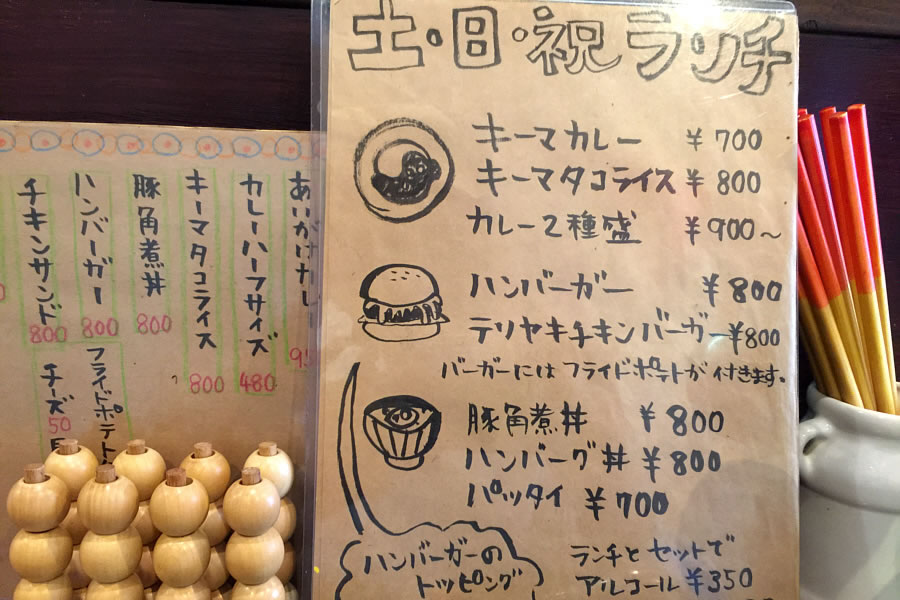 土・日・祝 ランチ
キーマカレー ¥700
キーマタコライス ¥800
カレー2種盛 ¥900～
ハンバーガー ¥800
テリヤキチキンバーガー ¥800
バーガーには フライドポテトが付きます。
豚角煮丼 ¥800
ハンバーグ丼 ¥800
パッタイ ¥700
ハンバーガーの
トッピング
ランチと セットで
アルコール ¥350
あいがけカレ
カレーハーフサイズ 480
キーマタコライス 800
豚角煮丼 800
ハンバーガー 800
チキンサンド 800
フライドポテト
チーズ 50